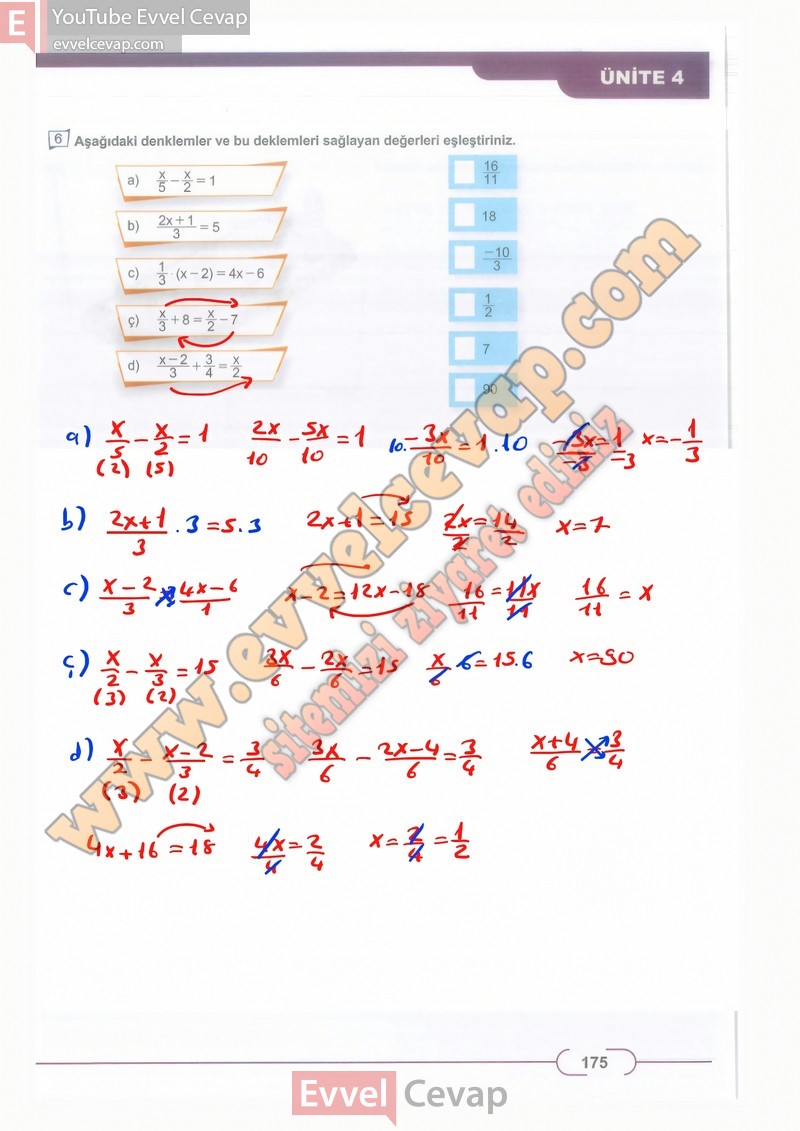 YouTube Evvel Cevap
evvelcevap.com
ÜNİTE 4
6 Aşağıdaki denklemler ve bu deklemleri sağlayan değerleri eşleştiriniz.
a) x/5 − x/2 = 1
b) (2x + 1)/3 = 5
c) 1/3 · (x − 2) = 4x − 6
ç) x/3 + 8 = x/2 − 7
d) (x − 2)/3 + 3/4 = x/2
16/11
18
−10/3
1/2
7
90
a) x/5 − x/2 = 1 (2) (5) 2x/10 − 5x/10 = 1 10. −3x/10 = 1 . 10 −3x/−3 = 1/−3 x = −1/3
b) (2x+1)/3 . 3 = 5 . 3 2x+1 = 15 2x/2 = 14/2 x = 7
c) (x−2)/3 (4x−6)/1 x−2 = 12x−18 16/11 = 11x/11 16/11 = x
ç) x/2 − x/3 = 15 (3) (2) 3x/6 − 2x/6 = 15 x/6 6 = 15.6 x = 90
d) x/2 − (x−2)/3 = 3/4 (3) (2) 3x/6 − (2x−4)/6 = 3/4 (x+4)/6 3/4
4x+16 = 18 4x/4 = 2/4 x = 2/4 = 1/2
www.evvelcevap.com
sitemizi ziyaret ediniz
175
Evvel Cevap